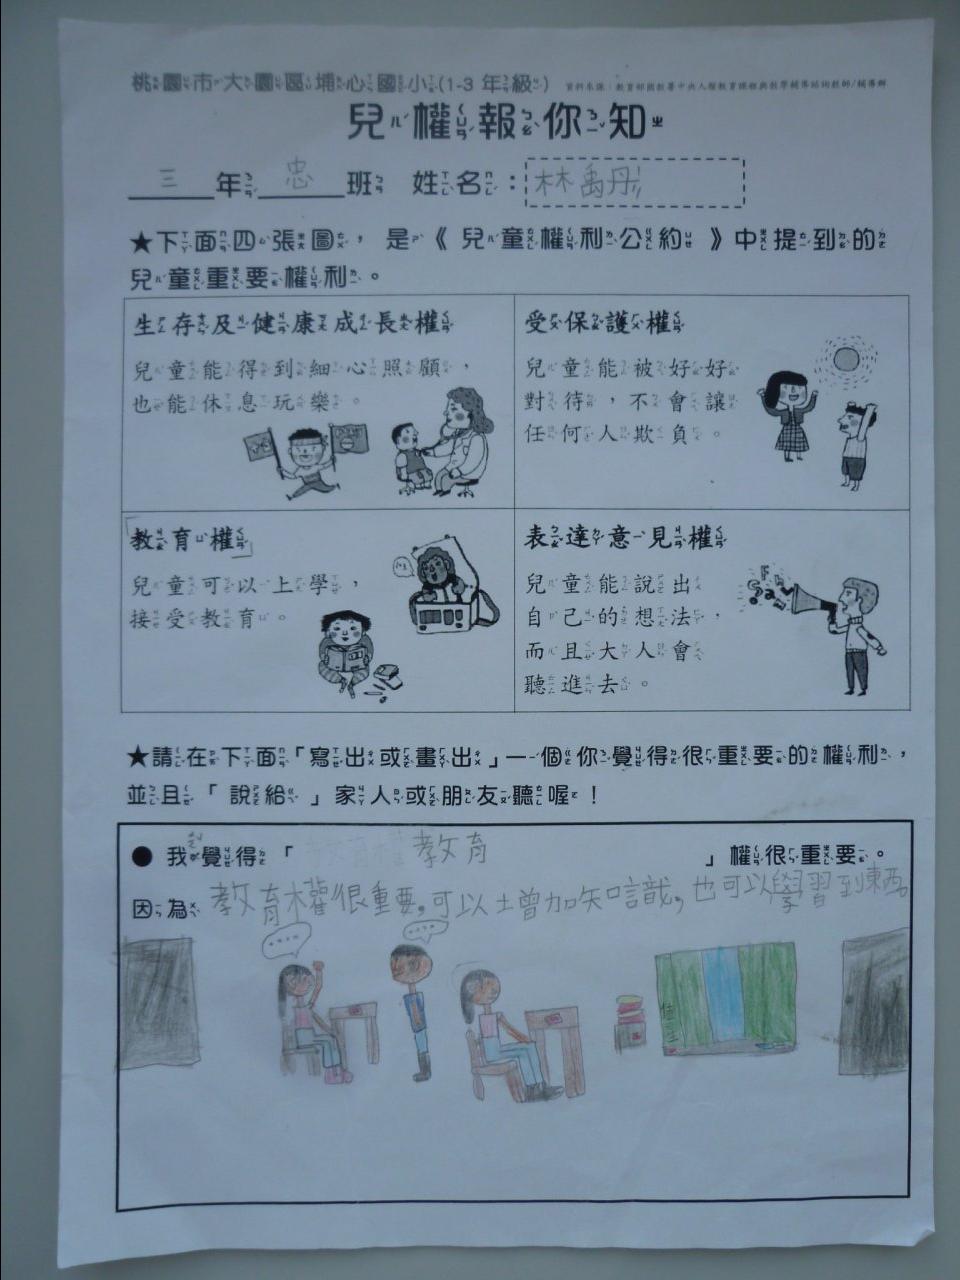 桃園市大園區埔心國小(1-3年級)
資料來源：教育部國教署中央人權教育課程與教學輔導諮詢教師/輔導群
兒權報你知
三年忠班 姓名：林禹彤
★下面四張圖，是《兒童權利公約》中提到的
兒童重要權利。
生存及健康成長權
兒童能得到細心照顧，
也能休息玩樂。
受保護權
兒童能被好好
對待，不會讓
任何人欺負。
「教育權」
兒童可以上學，
接受教育。
表達意見權
兒童能說出
自己的想法，
而且大人會
聽進去。
★請在下面「寫出或畫出」一個你覺得很重要的權利，
並且「說給」家人或朋友聽喔！
●我覺得「教育」權很重要。
因為教育權很重要，可以增加知識，也可以學習到東西。